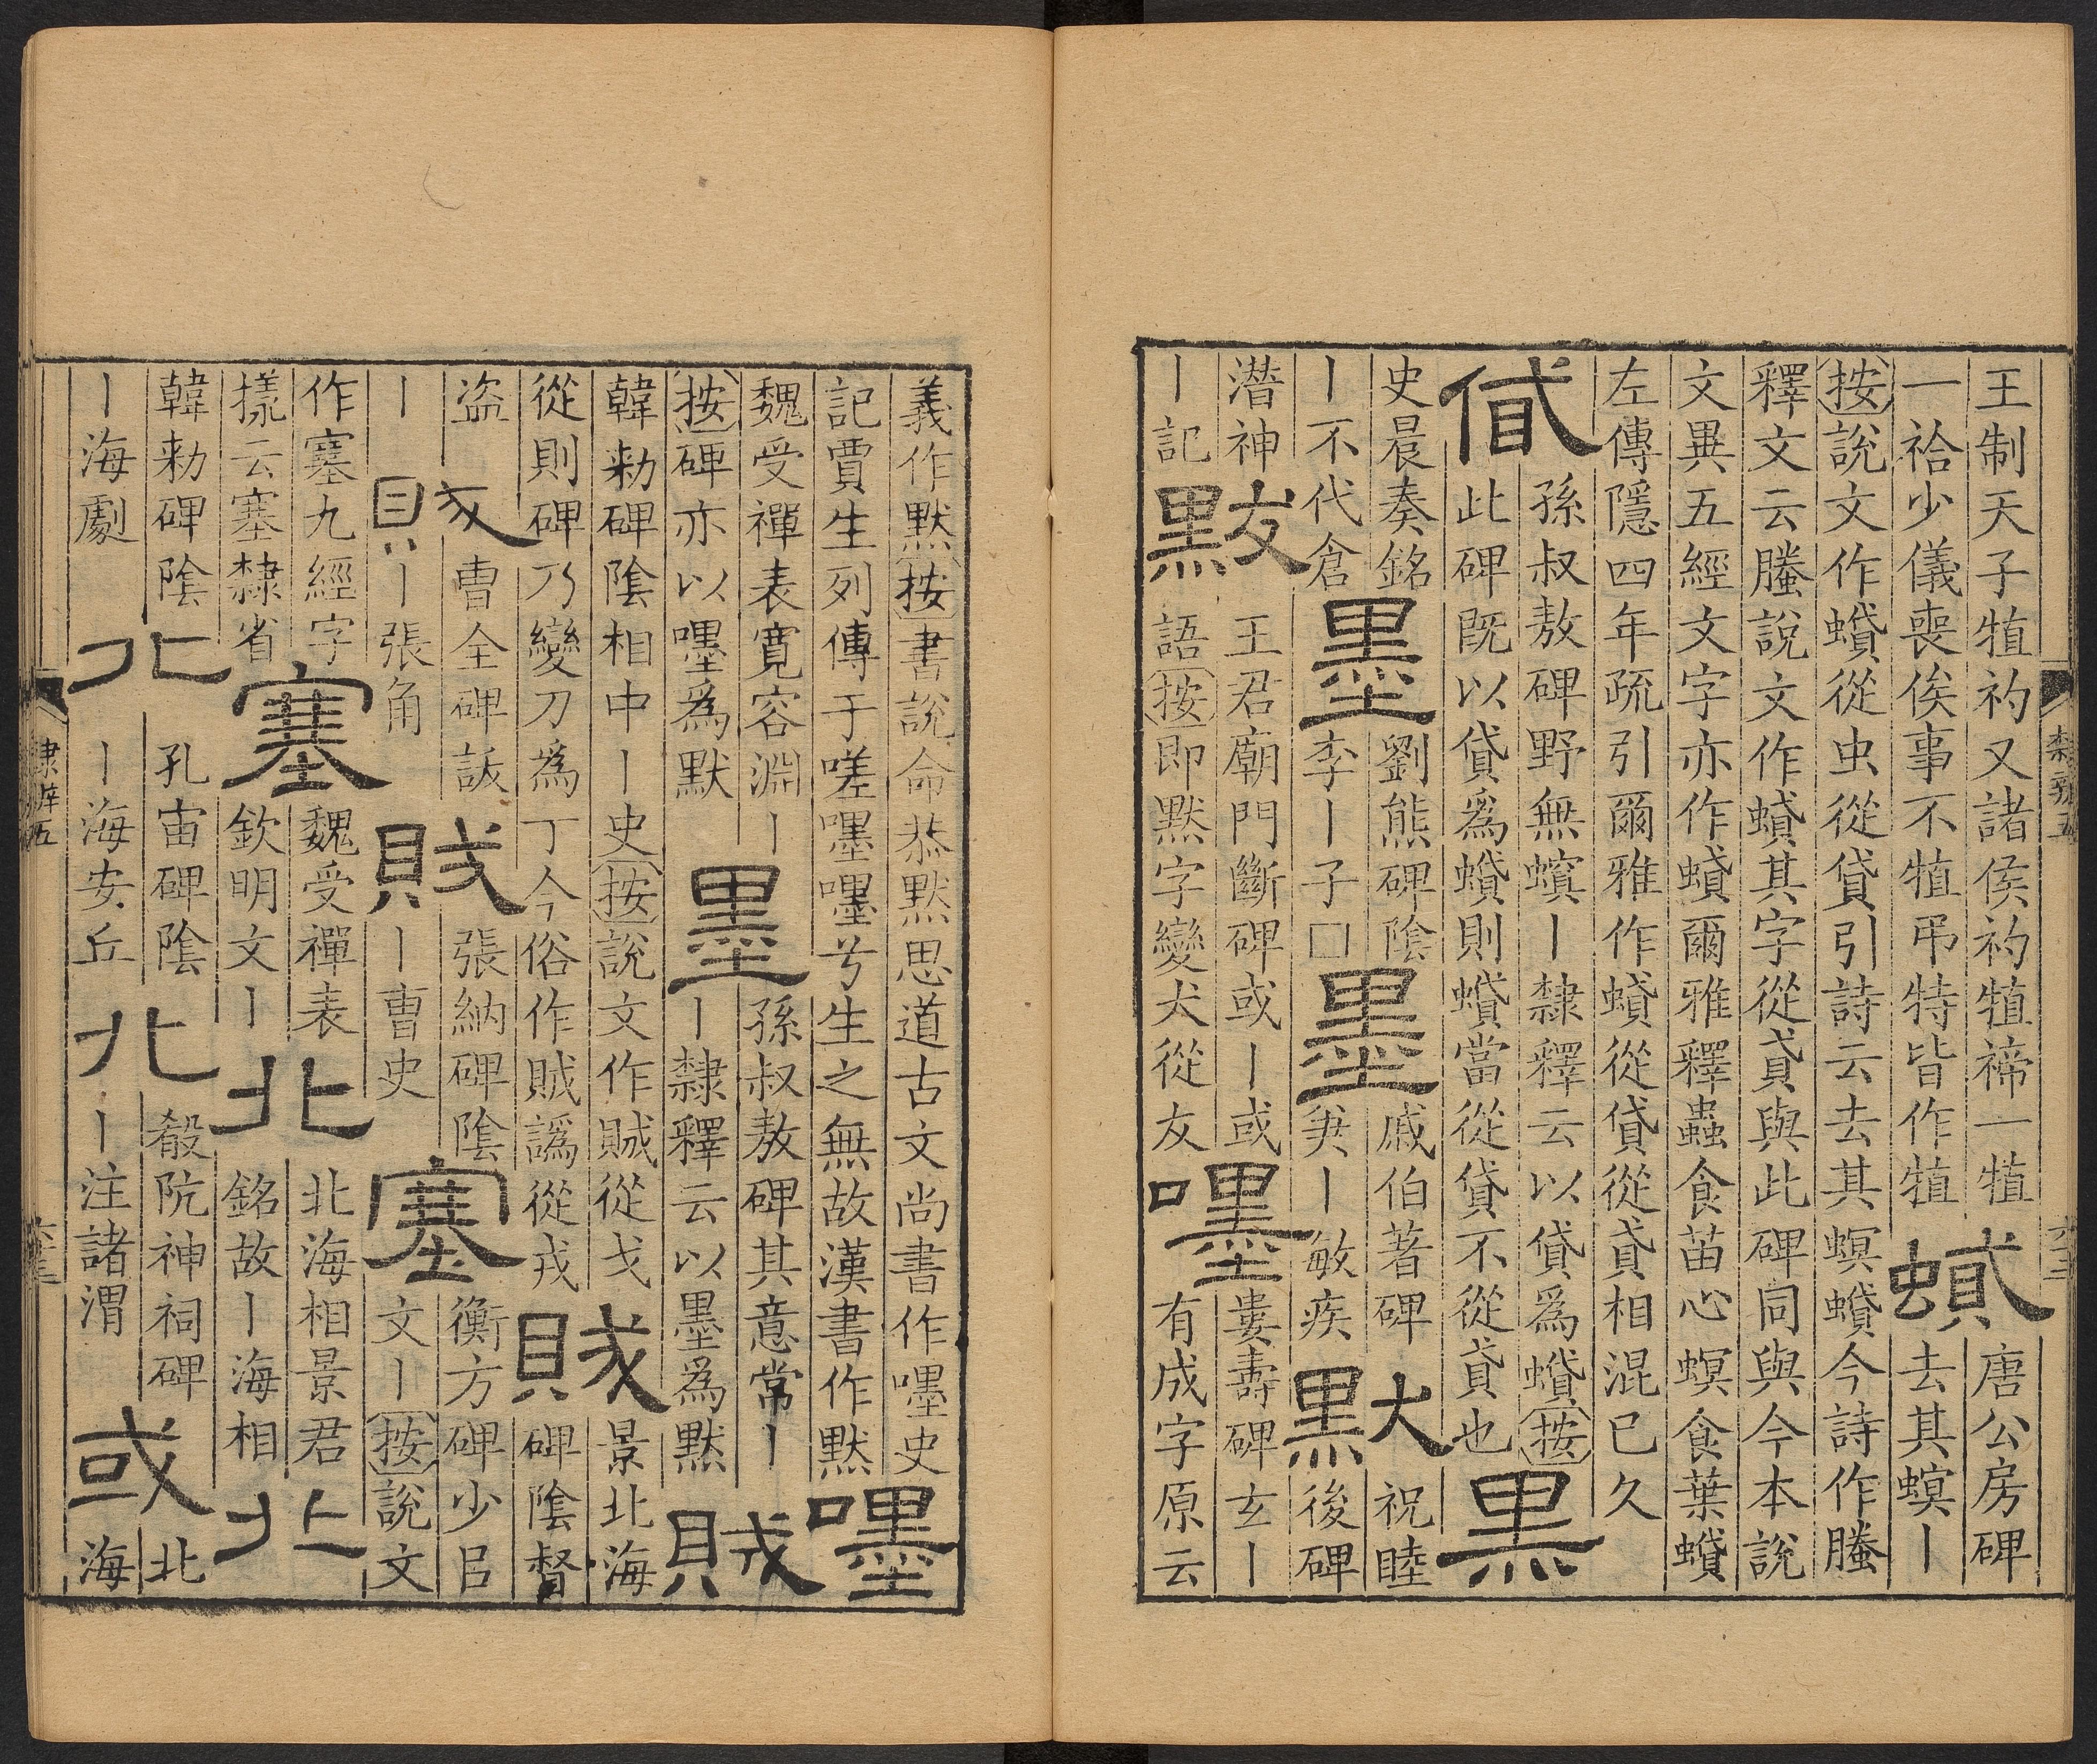 王制天子犆礿又諸侯礿犆禘一犆蟘唐公房碑
一祫少儀喪俟事不犆弔特皆作犆去其螟丨
按說文作蟘從虫從貸引詩云去其螟蟘今詩作螣
釋文云螣說文作蟘其字從貣與此碑同與今本說
文異五經文字亦作蟘爾雅釋蟲食苗心螟食葉蟘
左傳隱四年疏引爾雅作蟘從貸從貣相混已久
貸孫叔敖碑野無螟丨隸釋云以貸爲蟘按黑
此碑既以貸爲蟘則蟘當從貸不從貣也
史晨奏銘墨劉熊碑陰墨戚伯著碑默祝睦
丨不代倉李丨子□丨敏疾後碑
潛神默王君廟門斷碑或丨或嘿婁壽碑玄丨
丨記語按即默字變犬從犮有成字原云
義作默按書說命恭默思道古文尚書作嘿史嘿
記賈生列傳于嗟嘿嘿兮生之無故漢書作默
魏受禪表寬容淵丨墨孫叔敖碑其意常丨賊
按碑亦以嘿爲默丨隸釋云以墨爲默
韓勑碑陰相中丨史按說文作賊從戈賊景北海
從則碑乃變刀爲丁今俗作賊譌從戎碑陰督
盜賊曹全碑訞賊張納碑陰塞衡方碑少㠯
丨丨張角丨曹史文丨按說文
作塞九經字塞魏受禪表北北海相景君北
㨾云塞隸省欽明文丨銘故丨海相
韓勑碑陰北孔宙碑陰北殽阬神祠碑或北
丨海劇丨海安丘丨注諸渭海
隸辨五
六十三